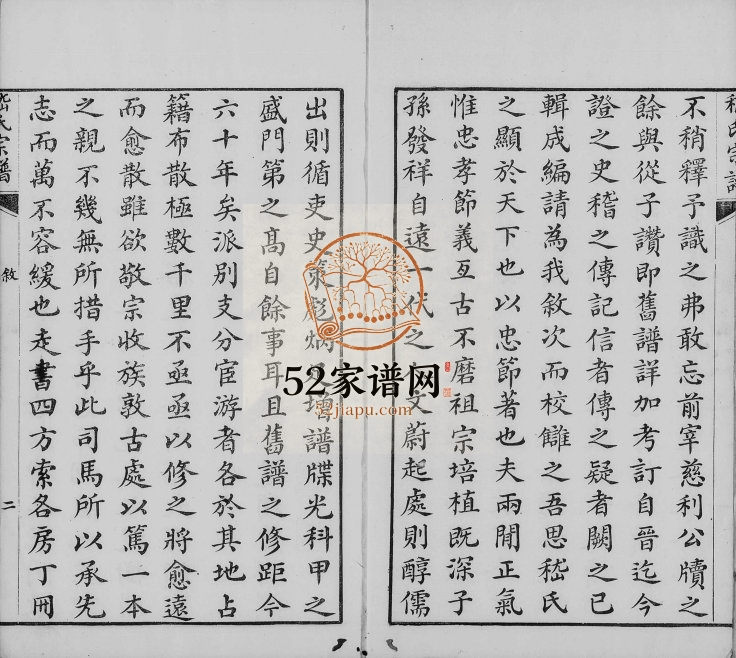 嵇氏宗譜
不稍釋予識之弗敢忘前宰慈利公牘之
餘與從子讚即舊譜詳加考訂自晉迄今
證之史稽之傳記信者傳之疑者闕之已
輯成編請為我敘次而校讎之吾思嵇氏
之顯於天下也以忠節著也夫兩閒正氣
惟忠孝節義亙古不磨祖宗培植既深子
孫發祥自遠一代之文蔚起處則醇儒
出則循吏史策彪炳譜牒光科甲之
盛門第之髙自餘事耳且舊譜之修距今
六十年矣派別支分宦游者各於其地占
籍布散極數千里不亟亟以修之將愈遠
而愈散雖欲敬宗收族敦古處以篤一本
之親不幾無所措手乎此司馬所以承先
志而萬不容緩也走書四方索各房丁冊
嵇氏宗譜
敘
二
52家谱网
52jiapu.com